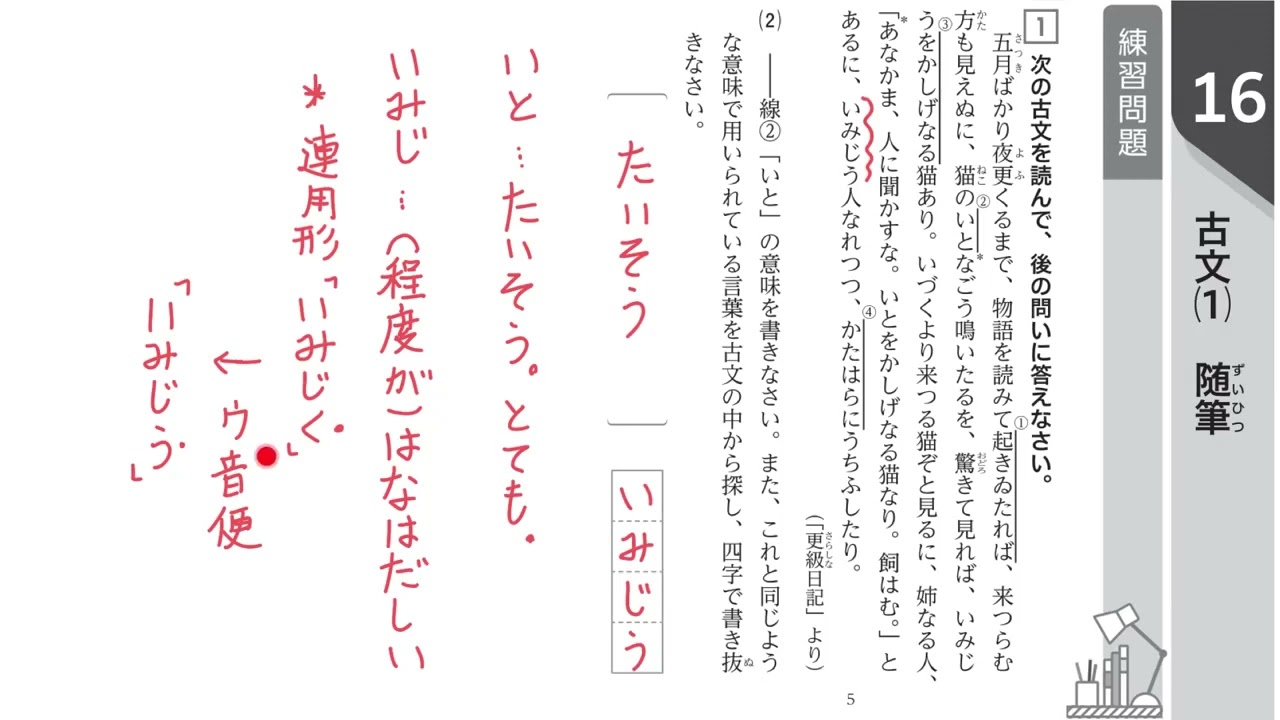 16
古文(1) 随筆
ずいひつ
練習問題
1 次の古文を読んで、後の問いに答えなさい。
五月ばかり夜更くるまで、物語を読みて起きゐたれば、来つらむ
さつき
よふ
①
方も見えぬに、猫のいとなごう鳴いたるを、驚きて見れば、いみじ
かた
ねこ
②
*
おどろ
うをかしげなる猫あり。いづくより来つる猫ぞと見るに、姉なる人、
③
「あなかま、人に聞かすな。いとをかしげなる猫なり。飼はむ。」と
*
あるに、いみじう人なれつつ、かたはらにうちふしたり。
④
(「更級日記」より)
さらしな
(2) ――線②「いと」の意味を書きなさい。また、これと同じよう
な意味で用いられている言葉を古文の中から探し、四字で書き抜
ぬ
きなさい。
たいそう
いみじう
いと…たいそう。とても。
いみじ…(程度が)はなはだしい
*連用形「いみじく」
← ウ音便
「いみじう」
5